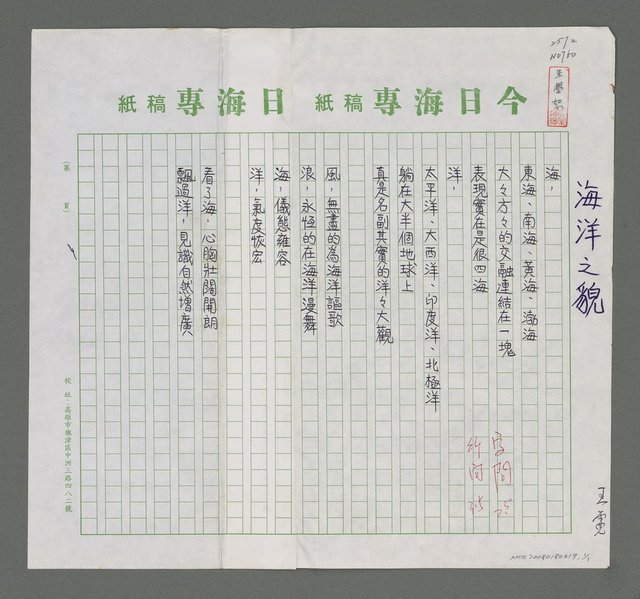 2572
N0760
今日海專稿紙
日海專稿紙
海洋之貌
王霓
海，
東海、南海、黃海、渤海
大々方々的交融連結在一塊
表現實在是很四海
洋，
太平洋、大西洋、印度洋、北極洋
躺在大半個地球上
真是名副其實的洋々大觀
風，無盡的為海洋謳歌
浪，永恆的在海洋漫舞
海，儀態雍容
洋，氣度恢宏
看了海，心胸壯闊開朗
飄過洋，見識自然增廣
(第　頁)
校址：高雄市旗津區中洲三路四八二號
行間
字間
NMTL20080180619